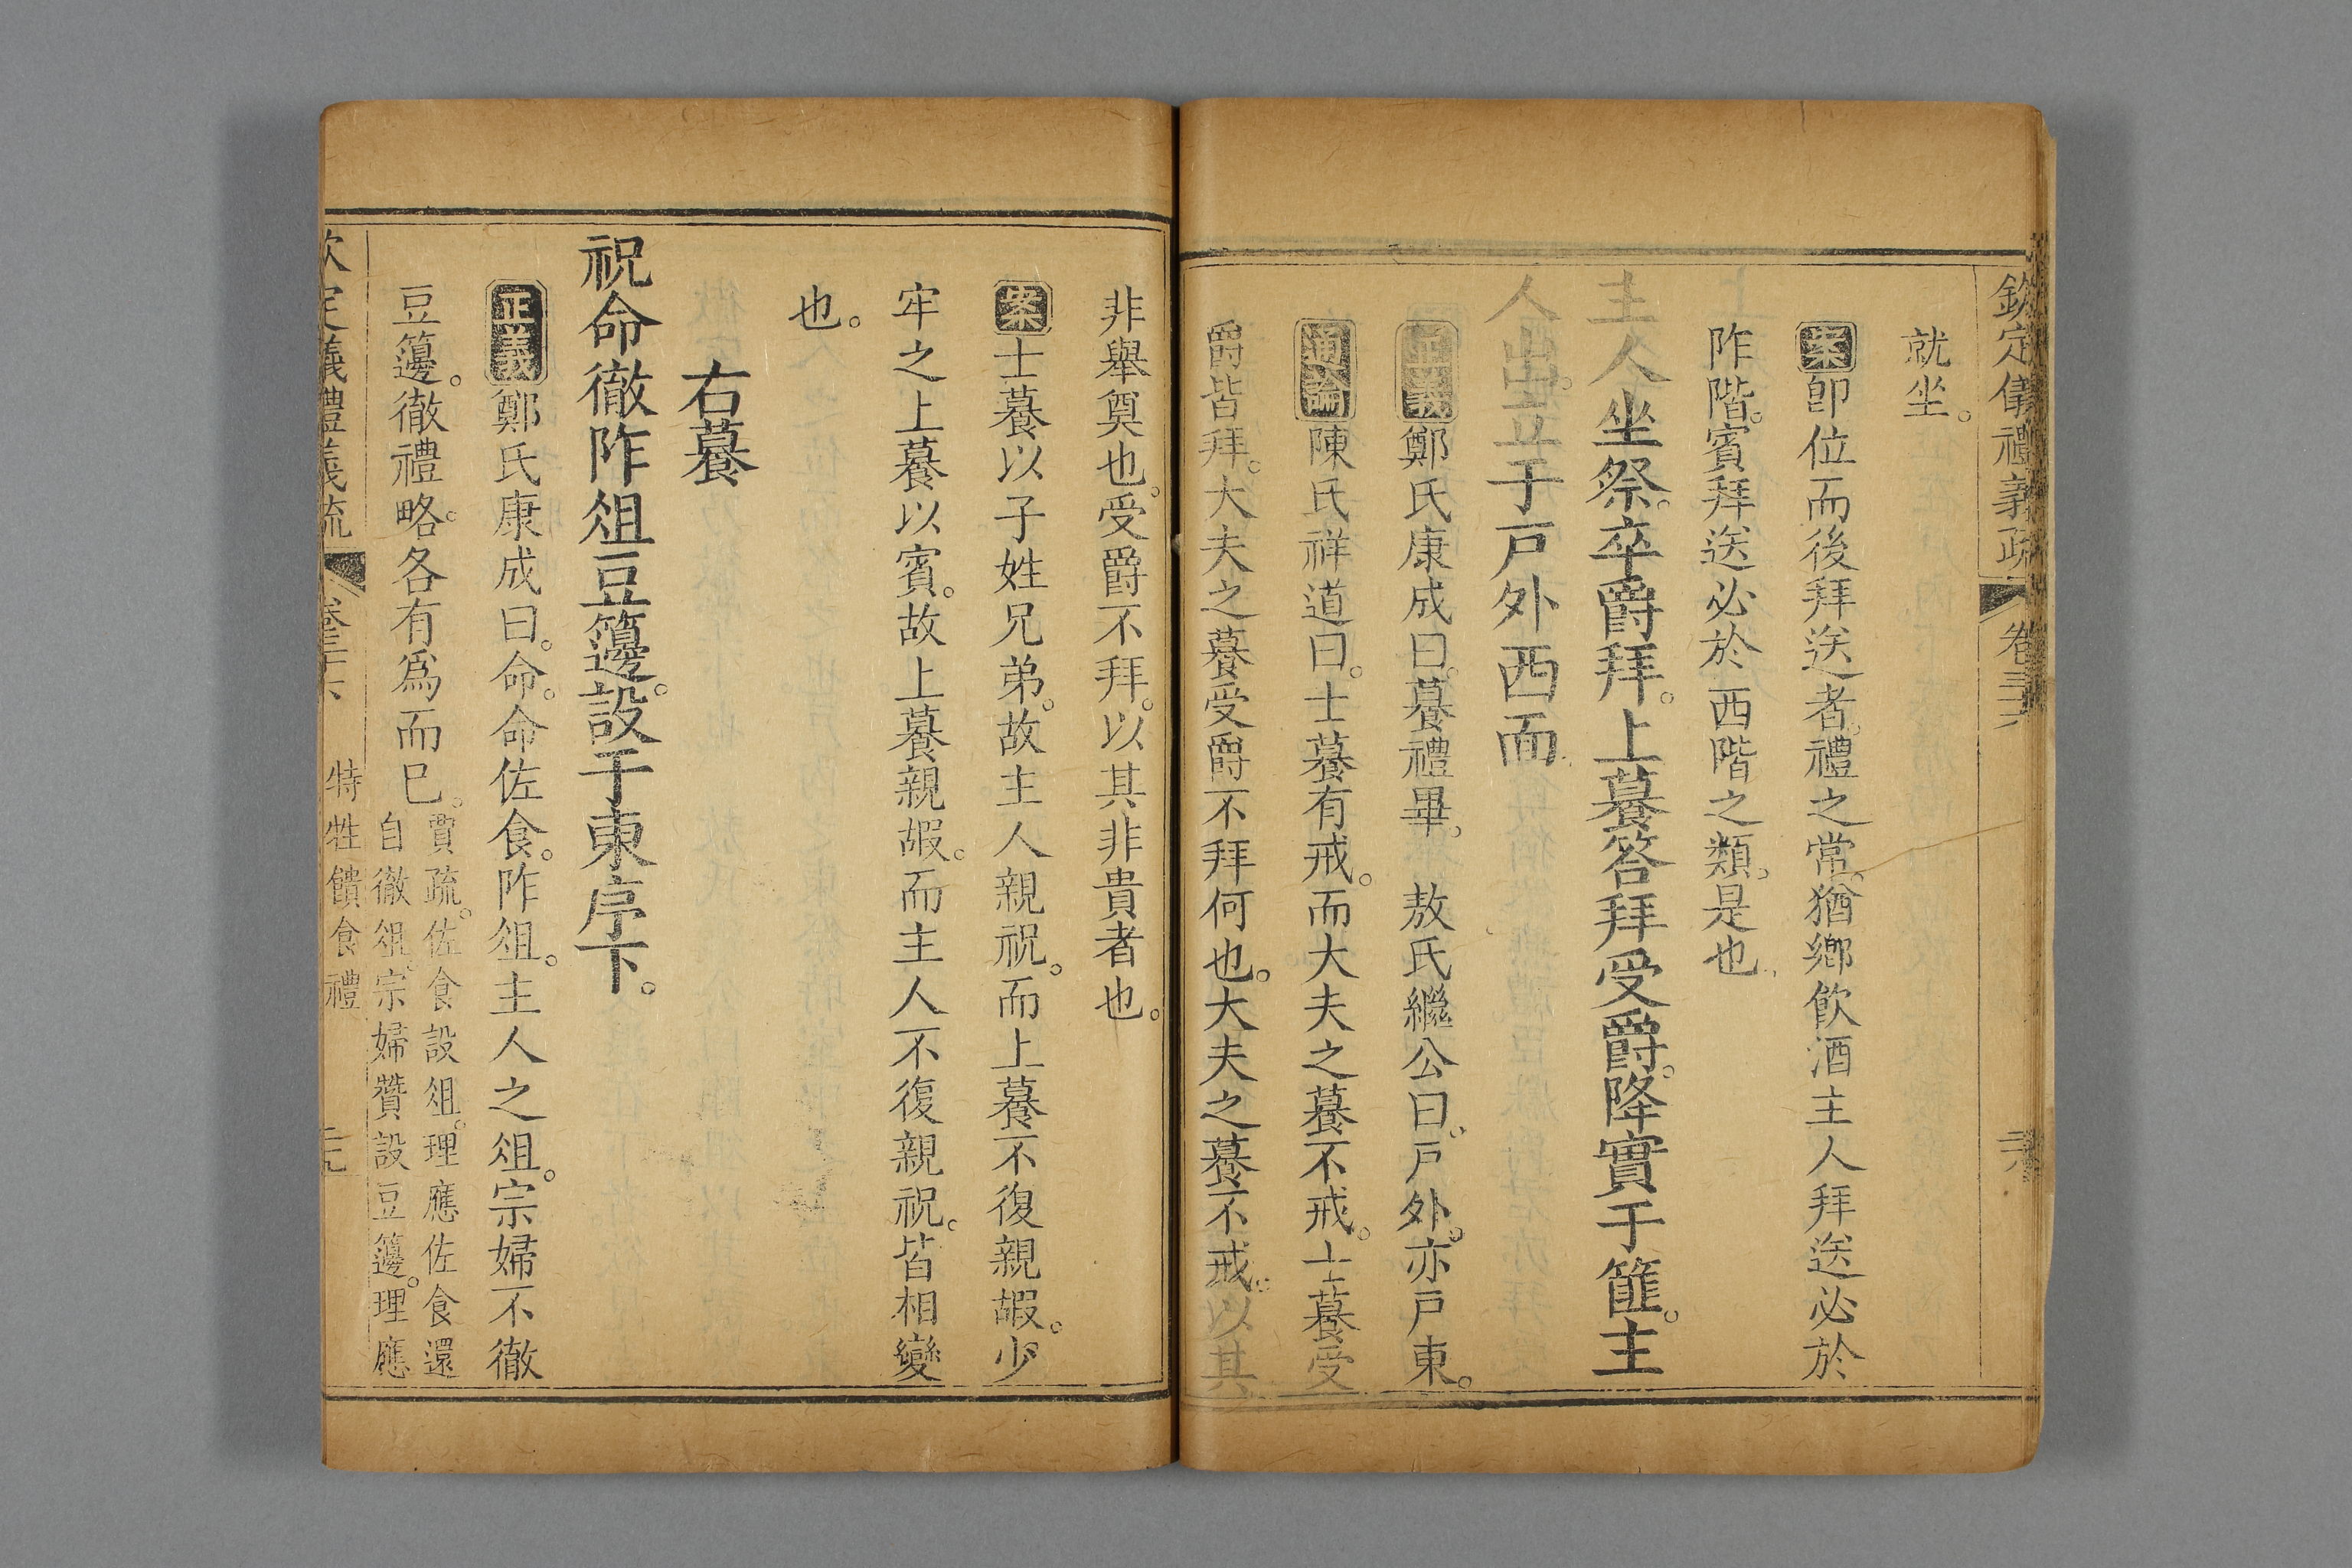 欽定儀禮義疏 卷三十六
就坐。
案卽位而後拜送者。禮之常。猶鄉飲酒主人拜送必於
阼階。賓拜送必於西階之類。是也。
主人坐祭。卒爵拜。上養答拜受爵。降實于篚。主
人出。立于戸外西面。
正義鄭氏康成曰。養禮畢。 敖氏繼公曰。戸外。亦戸東。
通論陳氏祥道曰。士養有戒。而大夫之養不戒。士養受
爵皆拜。大夫之養受爵不拜何也。大夫之養不戒。以其
非舉奠也。受爵不拜。以其非貴者也。
案士養以子姓兄弟。故主人親祝。而上養不復親嘏。少
牢之上養以賓。故上養親嘏。而主人不復親祝。皆相變
也。
右養
祝命徹阼俎豆籩。設于東序下。
正義鄭氏康成曰。命。命佐食。阼俎。主人之俎。宗婦不徹
豆籩。徹禮略。各有爲而已。賈疏。佐食設俎。理應佐食還
自徹俎。宗婦贊設豆籩。理應
欽定儀禮義疏 卷三十六 特牲饋食禮